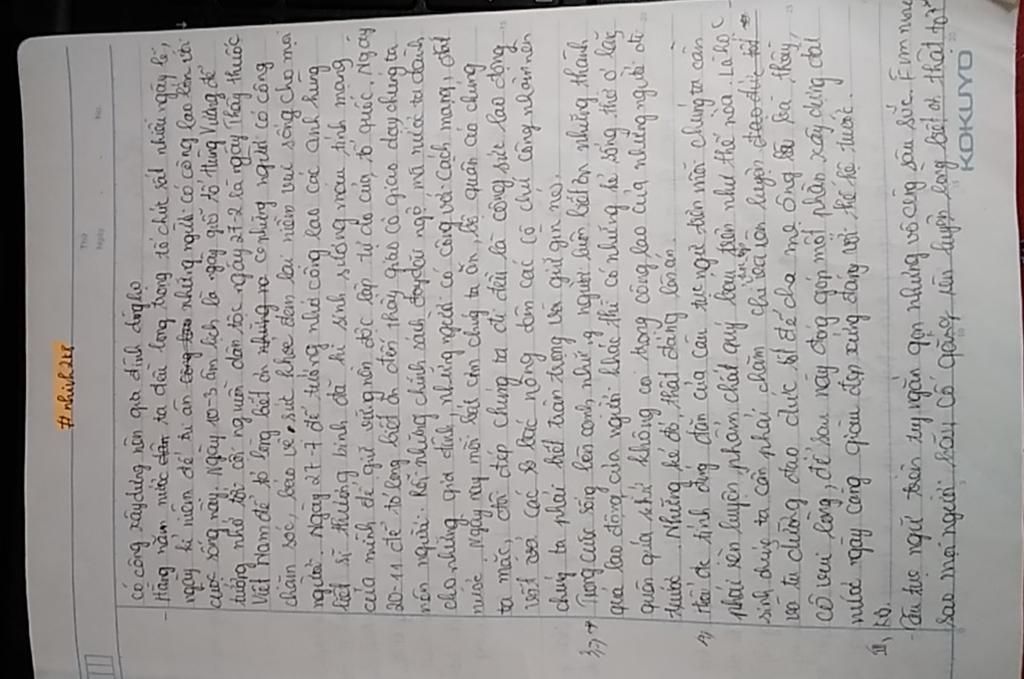 #nhinh247
Thứ
Ngày
No.
có công xây dựng nên gia đình dòng họ
- Hằng năm nước ta đều long trọng tổ chức rất nhiều ngày lễ,
ngày kỉ niệm để tri ân những người có công lao lớn với
cuộc sống này. Ngày 10-3 âm lịch là ngày giỗ tổ Hùng Vương để
tưởng nhớ tới cội nguồn dân tộc ngày 27-2 là ngày Thầy thuốc
Việt Nam để tỏ lòng biết ơn những người có công
chăm sóc, bảo vệ sức khỏe đem lại niềm vui sống cho mọi
người. Ngày 27-7 để tưởng nhớ công lao các anh hùng
liệt sĩ thương binh đã hi sinh xương máu, tính mạng
của mình để giữ vững nền độc lập tự do của tổ quốc. Ngày
20-11 để tỏ lòng biết ơn đến thầy giáo cô giáo dạy chúng ta
nên người. Rồi những chính sách đãi ngộ mà nước ta dành
cho những gia đình, những người có công với Cách mạng, đất
nước. Ngày nay mỗi bát cơm chúng ta ăn, bộ quần áo chúng
ta mặc, đôi dép chúng ta đi đều là công sức lao động
vất vả các cô bác nông dân các cô chú công nhân nên
chúng ta phải biết trân trọng và giữ gìn nó.
3, → Trong cuộc sống bên cạnh những người luôn biết ơn những thành
quả lao động của người khác thì có những kẻ sống thờ ơ lãng
quên quá khứ không coi trọng công lao của những người đi
trước. Những kẻ đó thật đáng lên án.
4, Thấy được tính đúng đắn của câu tục ngữ trên mỗi chúng ta cần
phải rèn luyện phẩm chất quý báu trên như thế nào. Là học
sinh, chúng ta cần phải chăm chỉ học tập rèn luyện
và tu dưỡng đạo đức tốt để cha mẹ ông bà, thầy,
cô vui lòng, để sau này đóng góp một phần xây dựng đất
nước ngày càng giàu đẹp xứng đáng với thế hệ trước.
III, KB.
- Câu tục ngữ trên tuy ngắn gọn nhưng vô cùng sâu sắc. Em mong
sao mọi người hãy cố gắng rèn luyện lòng biết ơn thật tốt
KOKUYO